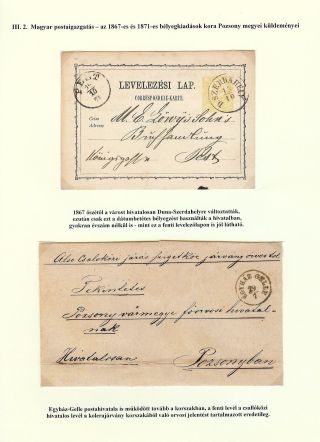 III. 2. Magyar postaigazgatás – az 1867-es és 1871-es bélyegkiadások kora Pozsony megyei küldeményei
PEST
D. SZERDAHELY
LEVELEZÉSI LAP.
CORRESPONDENZ-KARTE.
Czím
Adresse
M. E. Löwy's Sohn's
Buchhandlung
Königsgasse Pest
1867 őszétől a várost hivatalosan Duna-Szerdahelyre változtatták,
ezután csak ezt a dátumbetétes bélyegzést használták a hivatalban,
gyakran évszám nélkül is - mint ez a fenti levelezőlapon is jól látható.
Tekintetes
EGYHÁZ GELLE
Pozsony vármegye főorvosi hivatal-
nak
Hivatalosan Pozsonyban
Egyház-Gelle postahivatala is működött tovább a korszakban, a fenti levél a csallóközi
hivatalos levél a kolerajárvány korszakából való orvosi jelentést tartalmazott eredetileg.